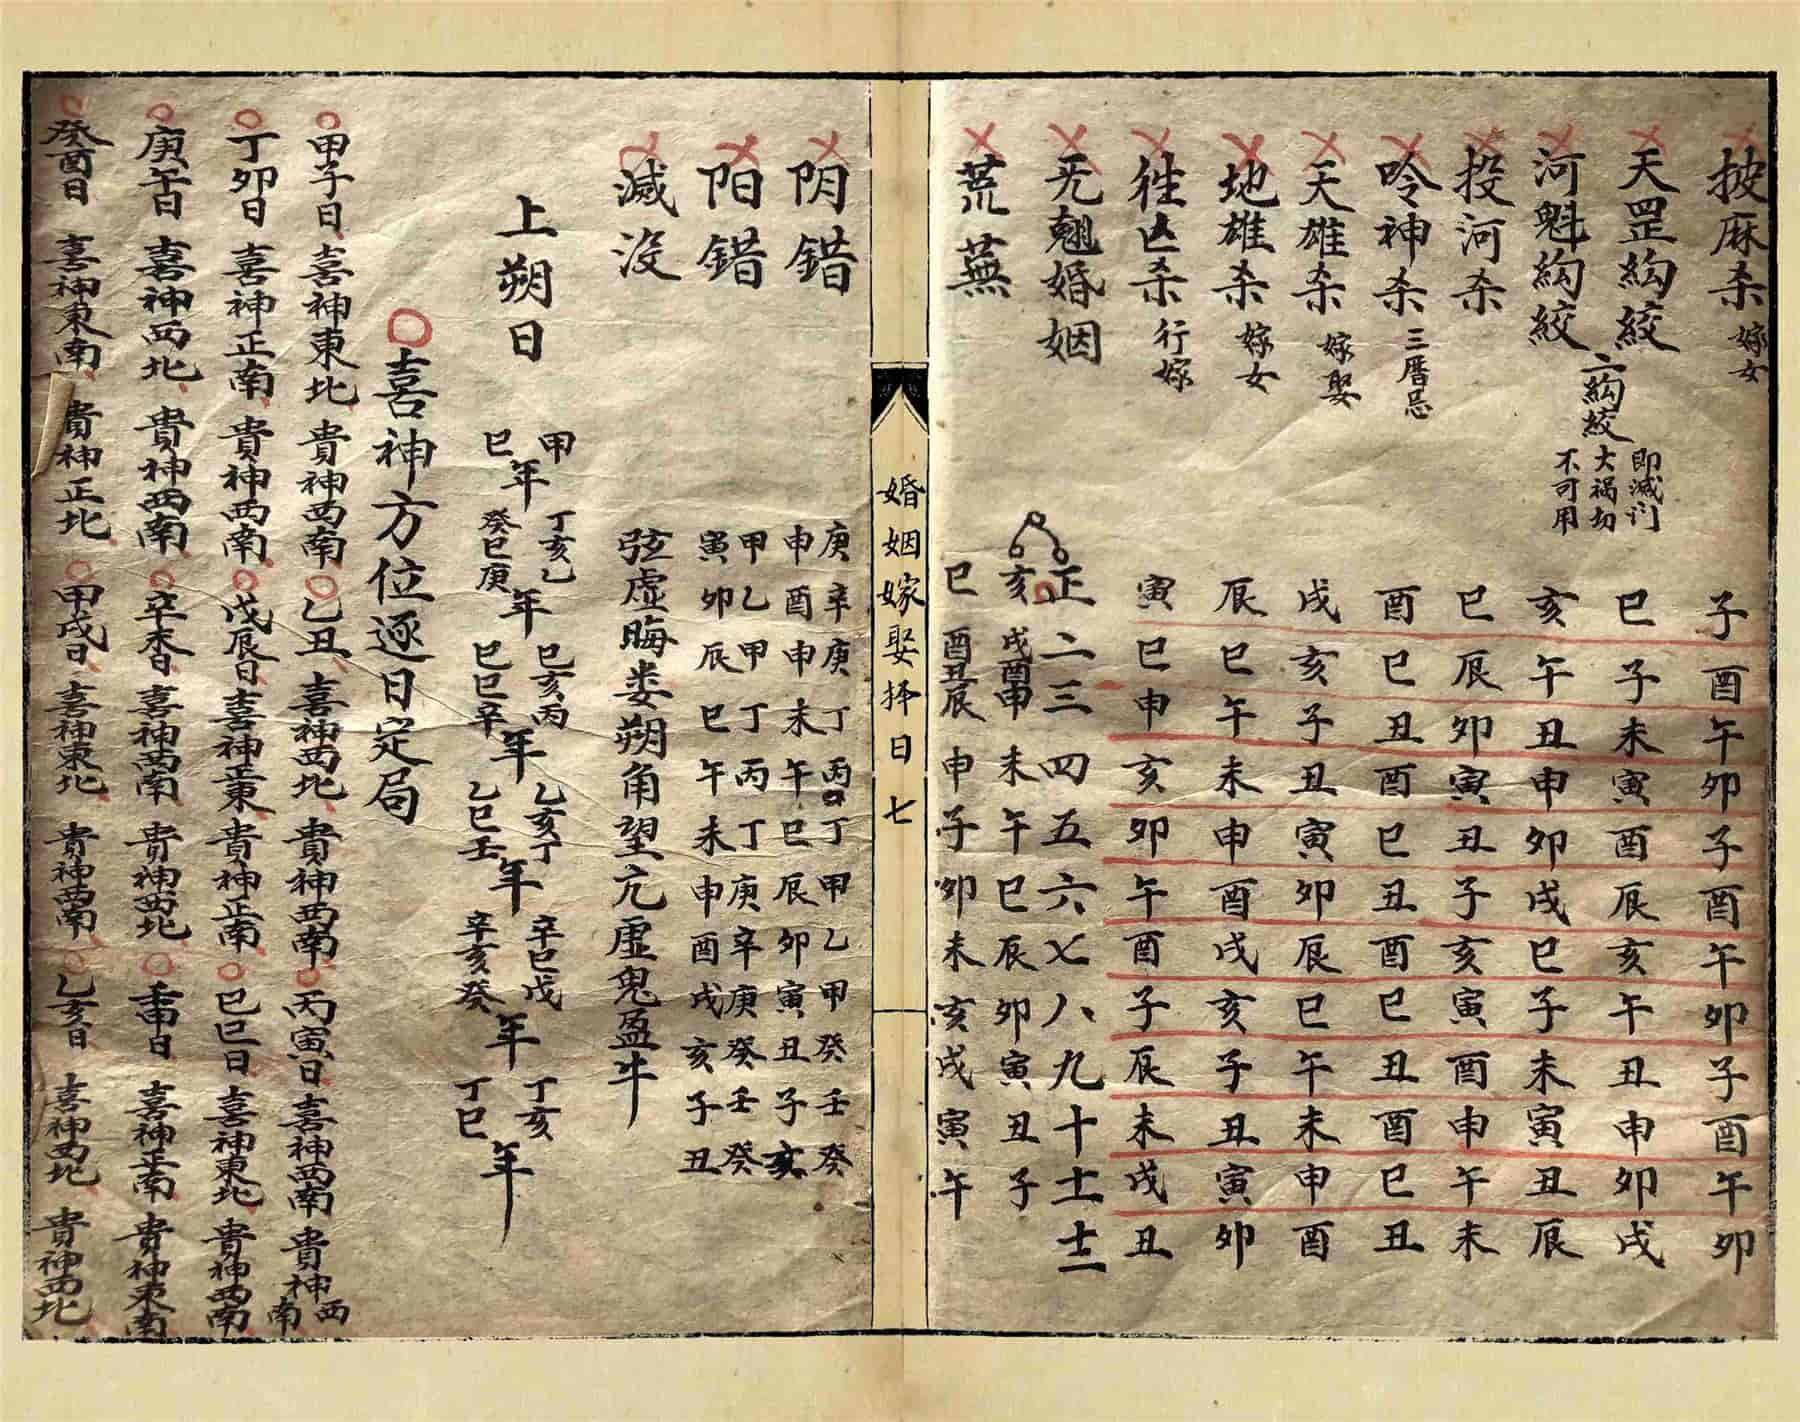 披麻杀 嫁女 子酉午卯子酉午卯子酉午卯
天罡絇絞 巳子未寅酉辰亥午丑申卯戌
二絇絞 即滅门大禍切不可用
河魁絇絞 亥午丑申卯戌巳子未寅丑辰
投河杀 巳辰卯寅丑子亥寅酉申午未
呤神杀 三曆忌 酉巳丑酉巳丑酉巳丑酉巳丑
天雄杀 嫁娶 戌亥子丑寅卯辰巳午未申酉
地雄杀 嫁女 辰巳午未申酉戌亥子丑寅卯
徃亡杀 行嫁 寅巳申亥卯午酉子辰未戌丑
无翹婚姻 正二三四五六七八九十十一十二
亥戌酉申未午巳辰卯寅丑子
荒蕪 巳酉丑辰申子卯未亥戌寅午
婚姻嫁娶择日七
阴错 庚辛庚丁丙丁甲乙甲癸壬癸
申酉申未午巳辰卯寅丑子亥
阳错 甲乙甲丁丙丁庚辛庚癸壬癸
寅卯辰巳午未申酉戌亥子丑
滅没 弦虚晦娄朔角望亢虚鬼盈牛
上朔日 甲巳年 丁亥癸巳 乙庚年 巳亥巳巳 丙辛年 乙亥乙巳 丁壬年 辛巳辛亥 戊癸年 丁亥丁巳年
喜神方位逐日定局
甲子日 喜神東北 貴神西南 乙丑 喜神西北 貴神西南 丙寅日 喜神西南 貴神西南
丁卯日 喜神正南 貴神西南 戊辰日 喜神正東 貴神正南 巳巳日 喜神東北 貴神西南
庚午日 喜神西北 貴神西南 辛未日 喜神西南 貴神西北 壬申日 喜神正南 貴神東南
癸酉日 喜神東南 貴神正北 甲戌日 喜神東北 貴神西南 乙亥日 喜神西北 貴神西北